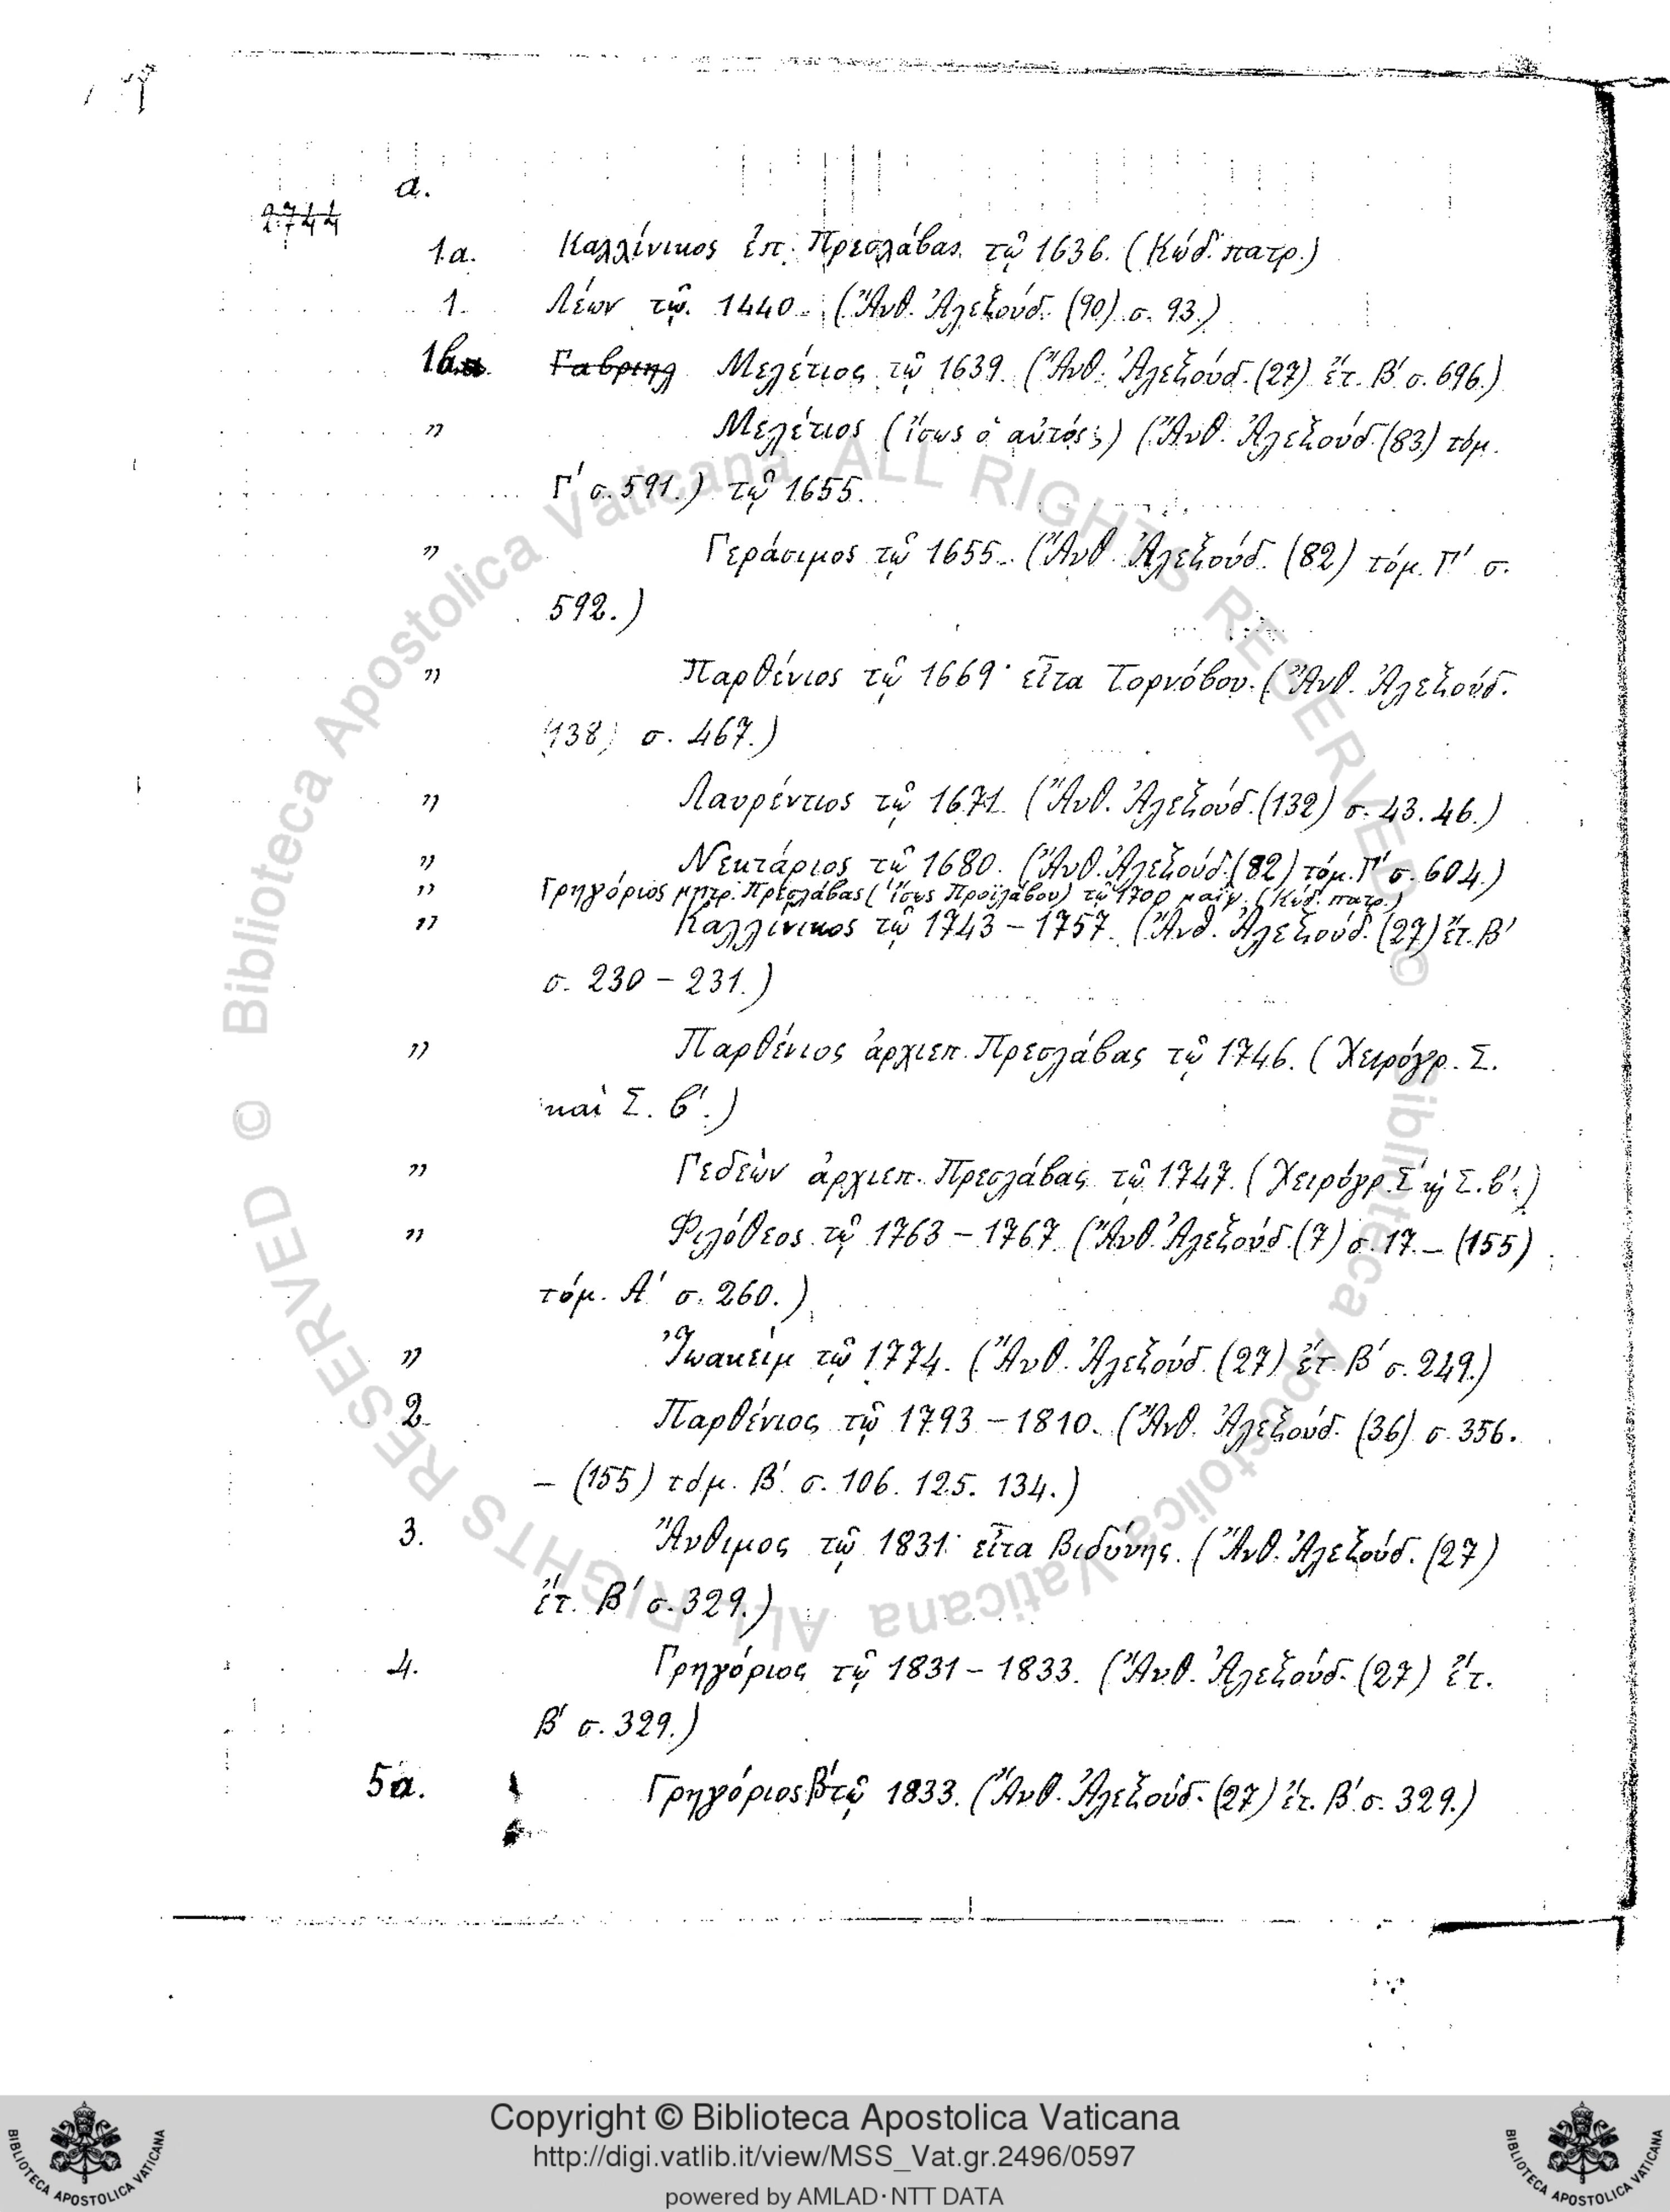 α.
2744
1α. Καλλίνικος ἐπ. Πρεσλάβας τῷ 1636. (Κώδ. πατρ.)
1. Λέων τῷ 1440. (Ἄνθ. Ἀλεξούδ. (90) σ. 93.)
1β. Γαβριηλ Μελέτιος τῷ 1639. (Ἄνθ. Ἀλεξούδ. (27) ἔτ. Β' σ. 696.)
" Μελέτιος (ἴσως ὁ αὐτός;) (Ἄνθ. Ἀλεξούδ. (83) τόμ.
Γ' σ. 591.) τῷ 1655.
" Γεράσιμος τῷ 1655. (Ἄνθ. Ἀλεξούδ. (82) τόμ. Γ' σ.
592.)
" Παρθένιος τῷ 1669· εἶτα Τορνόβου. (Ἄνθ. Ἀλεξούδ.
(138) σ. 467.)
" Λαυρέντιος τῷ 1671. (Ἄνθ. Ἀλεξούδ. (132) σ. 43. 46.)
" Νεκτάριος τῷ 1680. (Ἄνθ. Ἀλεξούδ. (82) τόμ. Γ' σ. 604.)
" Γρηγόριος μητρ. Πρεσλάβας (ἴσως Προϊλάβου) τῷ 1700 μαΐῳ. (Κώδ. πατρ.)
" Καλλίνικος τῷ 1743 – 1757. (Ἄνθ. Ἀλεξούδ. (27) ἔτ. Β'
σ. 230 – 231.)
" Παρθένιος ἀρχιεπ. Πρεσλάβας τῷ 1746. (Χειρόγρ. Σ.
καὶ Σ. β'.)
" Γεδεὼν ἀρχιεπ. Πρεσλάβας τῷ 1747. (Χειρόγρ. Σ ϗ Σ. β'.)
" Φιλόθεος τῷ 1763 – 1767. (Ἄνθ. Ἀλεξούδ. (7) σ. 17. – (155)
τόμ. Α' σ. 260.)
" Ἰωακεὶμ τῷ 1774. (Ἄνθ. Ἀλεξούδ. (27) ἔτ. Β' σ. 249.)
2. Παρθένιος τῷ 1793 – 1810. (Ἄνθ. Ἀλεξούδ. (36) σ. 356.
– (155) τόμ. Β'. σ. 106. 125. 134.)
3. Ἄνθιμος τῷ 1831· εἶτα Βιδύνης. (Ἄνθ. Ἀλεξούδ. (27)
ἔτ. Β' σ. 329.)
4. Γρηγόριος τῷ 1831 – 1833. (Ἄνθ. Ἀλεξούδ. (27) ἔτ.
Β' σ. 329.)
5α. Γρηγόριος Β' τῷ 1833. (Ἄνθ. Ἀλεξούδ. (27) ἔτ. Β' σ. 329.)
© Biblioteca Apostolica Vaticana ALL RIGHTS RESERVED
© Biblioteca Apostolica Vaticana ALL RIGHTS RESERVED
Copyright © Biblioteca Apostolica Vaticana
http://digi.vatlib.it/view/MSS_Vat.gr.2496/0597
powered by AMLAD·NTT DATA
BIBLIOTECA APOSTOLICA VATICANA
BIBLIOTECA APOSTOLICA VATICANA